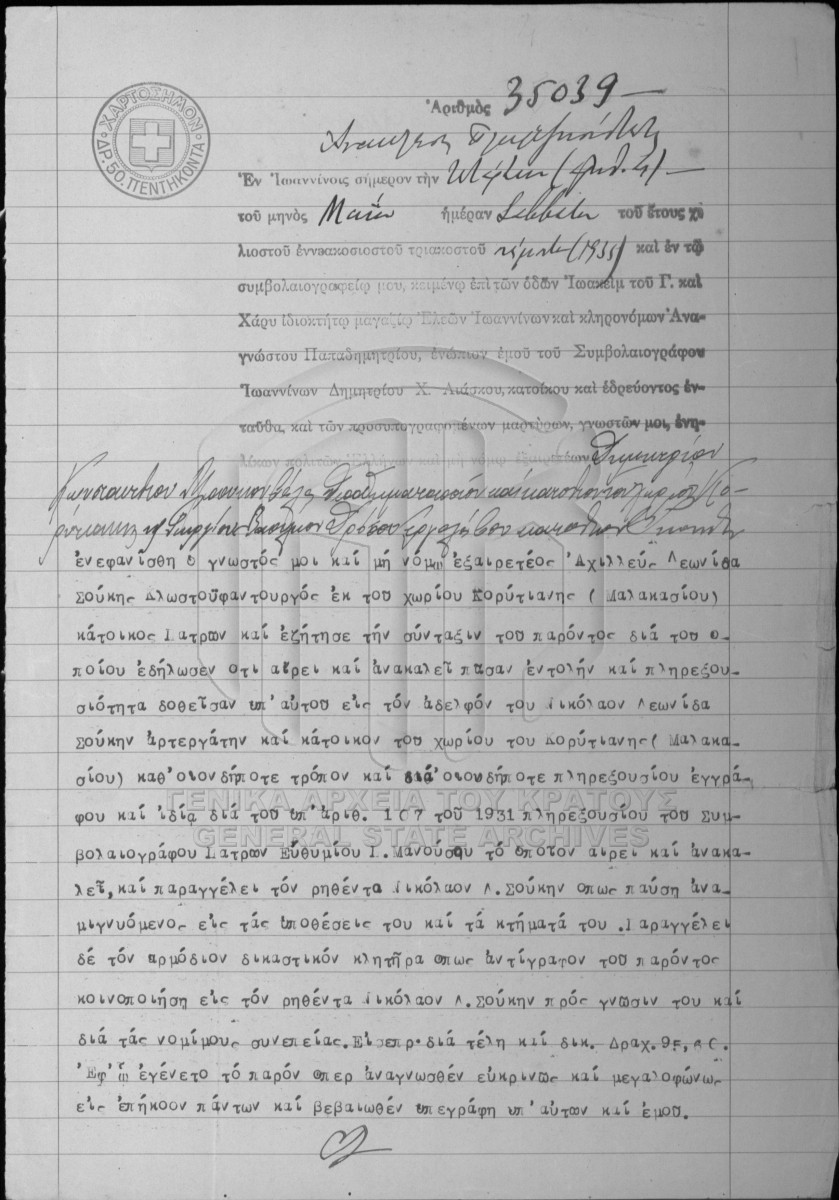 ΧΑΡΤΟΣΗΜΟΝ
ΔΡ. 50. ΠΕΝΤΗΚΟΝΤΑ
Ἀριθμὸς 35039 —
Ἀνάκλησις Πληρεξουσιότητος
Ἐν Ἰωαννίνοις σήμερον τὴν
τοῦ μηνὸς Μαΐου ἡμέραν Σάββατον τοῦ ἔτους χι
λιοστοῦ ἐννεακοσιοστοῦ τριακοστοῦ πέμπτου (1935) καὶ ἐν τῷ
συμβολαιογραφείῳ μου, κειμένῳ ἐπὶ τῶν ὁδῶν Ἰωακεὶμ τοῦ Γ. καὶ
Χάρυ ἰδιοκτήτῳ μαγαζίῳ Ἐλεῶν Ἰωαννίνων καὶ κληρονόμων Ἀνα-
γνώστου Παπαδημητρίου, ἐνώπιον ἐμοῦ τοῦ Συμβολαιογράφου
Ἰωαννίνων Δημητρίου Χ. Λιάσκου, κατοίκου καὶ ἑδρεύοντος ἐν-
ταῦθα, καὶ τῶν προσυπογραφομένων μαρτύρων, γνωστῶν μοι, ἐνη-
λίκων πολιτῶν Ἑλλήνων καὶ μὴ νόμῳ ἐξαιρετέων Δημητρίου
Κωνσταντίνου
Γεωργίου
ἐνεφανίσθη ὁ γνωστός μοι καί μή νόμῳ ἐξαιρετέος Ἀχιλλεύς Λεωνίδα
Σούκης Κλωστοϋφαντουργός ἐκ τοῦ χωρίου Κορύτιανης ( Μαλακασίου)
κάτοικος Πατρῶν καί ἐζήτησε τήν σύνταξιν τοῦ παρόντος διά τοῦ ὁ-
ποίου ἐδήλωσεν ὅτι αἴρει καί ἀνακαλεῖ πᾶσαν ἐντολήν καί πληρεξου-
σιότητα δοθεῖσαν ὑπ'αὐτοῦ εἰς τόν ἀδελφόν του Νικόλαον Λεωνίδα
Σούκην ἀρτεργάτην καί κάτοικον τοῦ χωρίου του Κορύτιανης( Μαλακα-
σίου) καθ'οἱονδήποτε τρόπον καί διά'οἱουδήποτε πληρεξουσίου ἐγγρά-
φου καί ἰδίᾳ διά τοῦ ὑπ'ἀριθ. 107 τοῦ 1931 πληρεξουσίου τοῦ Συμ-
βολαιογράφου Πατρῶν Εὐθυμίου Ι. Μανούσου τό ὁποῖον αἴρει καί ἀνακα-
λεῖ, καί παραγγέλει τόν ρηθέντα Νικόλαον Λ. Σούκην ὅπως παύσῃ ἀνα-
μιγνυόμενος εἰς τάς ὑποθέσεις του καί τά κτήματά του .Παραγγέλει
δέ τόν ἁρμόδιον δικαστικόν κλητῆρα ὅπως ἀντίγραφον τοῦ παρόντος
κοινοποιήσῃ εἰς τόν ρηθέντα Νικόλαον Λ. Σούκην πρός γνῶσιν του καί
διά τάς νομίμους συνεπείας. Εἰσεπρ.διά τέλη καί δικ. Δραχ.
Ἐφ' ᾧ ἐγένετο τό παρόν ὅπερ ἀναγνωσθέν εὐκρινῶς καί μεγαλοφώνως
εἰς ἐπήκοον πάντων καί βεβαιωθέν ὑπεγράφη ὑπ'αὐτῶν καί ἐμοῦ.
ΓΕΝΙΚΑ ΑΡΧΕΙΑ ΤΟΥ ΚΡΑΤΟΥΣ
GENERAL STATE ARCHIVES